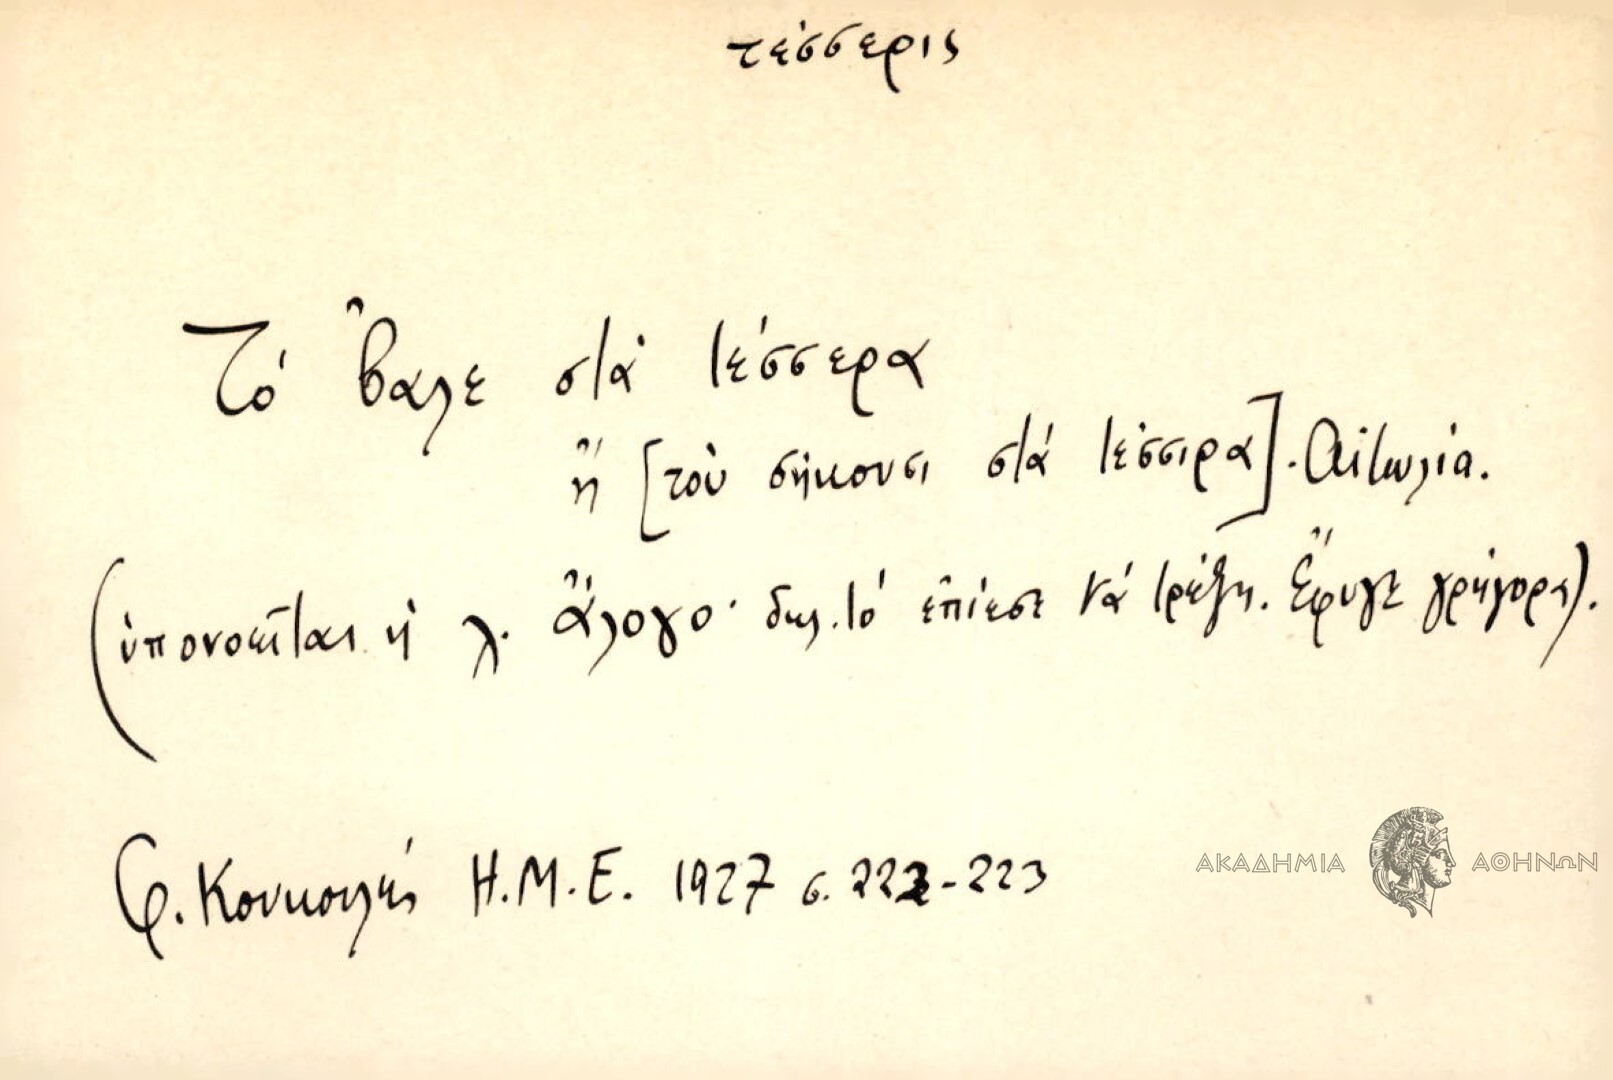 τέσσερις
Τό ἔβαλε στά τέσσερα
ἤ [τοὺ σήκουσι στά τέσσιρα]. Αἰτωλία.
(ὑπονοεῖται ἡ λ. ἄλογο· δηλ. τό ἐπίεσε νά τρέξη. Ἔφυγε γρήγορα).
Φ. Κουκουλές Η.Μ.Ε. 1927 σ. 222-223
ΑΚΑΔΗΜΙΑ ΑΘΗΝΩΝ